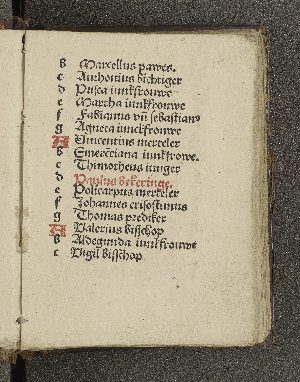 b Marcellus pawes.
c Anthonius bichtiger
d Prisca iunkfrouwe
e Martha iunkfrouwe
f Fabianus vn̄ sebastian
g Agneta iunckfrouwe
A Vincentius merteler
b Emerētiana iunkfrowe.
c Thimotheus iunger
d Paulus bekeringe.
e Policarpus merteler
f Johannes crisostimus
g Thomas prediker
A Valerius bisschop
b Aldegunda iunkfrouwe
c Vigil bisschop